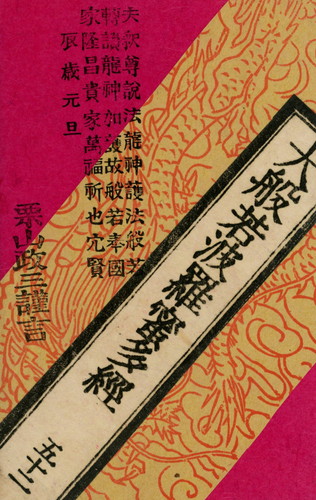 夫釈尊說法龍神護法般若
轉讀龍神加護故般若奉國
家隆昌貴家萬福祈也完賢
辰歲元旦
栗山政三謹言
大般若波羅蜜多經
五十二